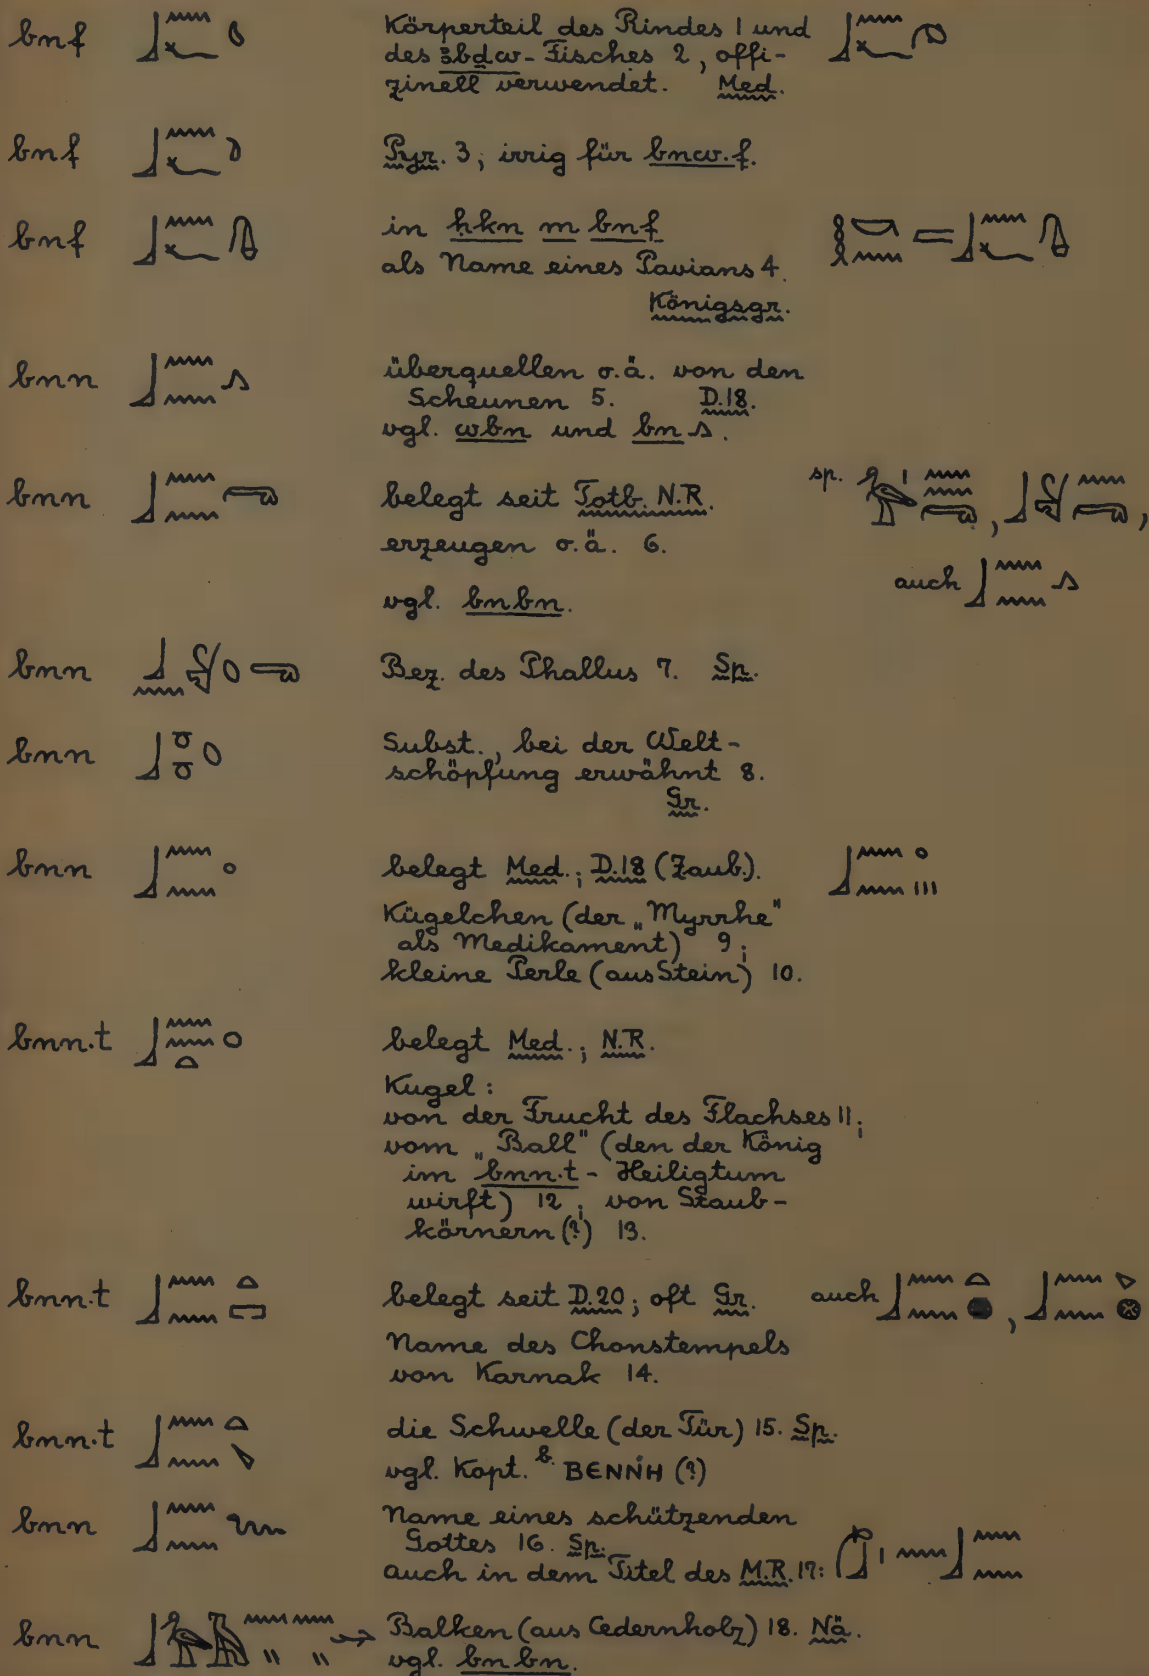 bnf Körperteil des Rindes 1 und
des ꜣbḏw-Fisches 2, offi-
zinell verwendet. Med.
bnf Pyr. 3; irrig für bnw.f.
bnf in ḥkn m bnf
als Name eines Pavians 4.
Königsgr.
bnn überquellen o.ä. von den
Scheunen 5. D.18.
vgl. wbn und bn 𓂻.
bnn belegt seit Totb. N.R. sp.
erzeugen o.ä. 6.
auch
vgl. bnbn.
bnn Bez. des Phallus 7. Sp.
bnn Subst., bei der Welt-
schöpfung erwähnt 8.
Gr.
bnn belegt Med.; D.18 (Zaub.).
Kügelchen (der „Myrrhe"
als Medikament) 9;
kleine Perle (aus Stein) 10.
bnn.t belegt Med.; N.R.
Kugel:
von der Frucht des Flachses 11;
vom „Ball" (den der König
im bnn.t-Heiligtum
wirft) 12; von Staub-
körnern (?) 13.
bnn.t belegt seit D.20; oft Gr. auch
Name des Chonstempels
von Karnak 14.
bnn.t die Schwelle (der Tür) 15. Sp.
vgl. Kopt. B. ⲂⲈⲚⲚⲎ (?)
bnn Name eines schützenden
Gottes 16. Sp.
auch in dem Titel des M.R. 17:
bnn Balken (aus Cedernholz) 18. Nä.
vgl. bnbn.